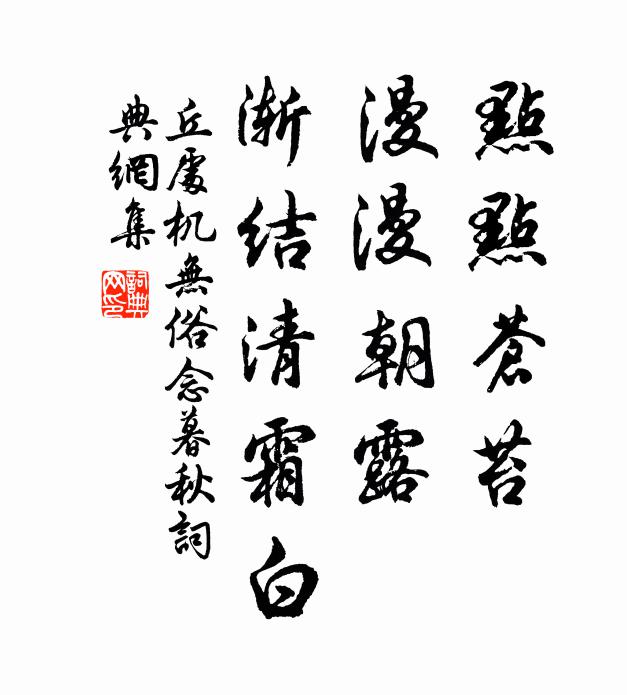 點點蒼苔
漫漫朝露
漸结清霜白
丘處机無俗念暮秋詞
典網集
詞典
网印